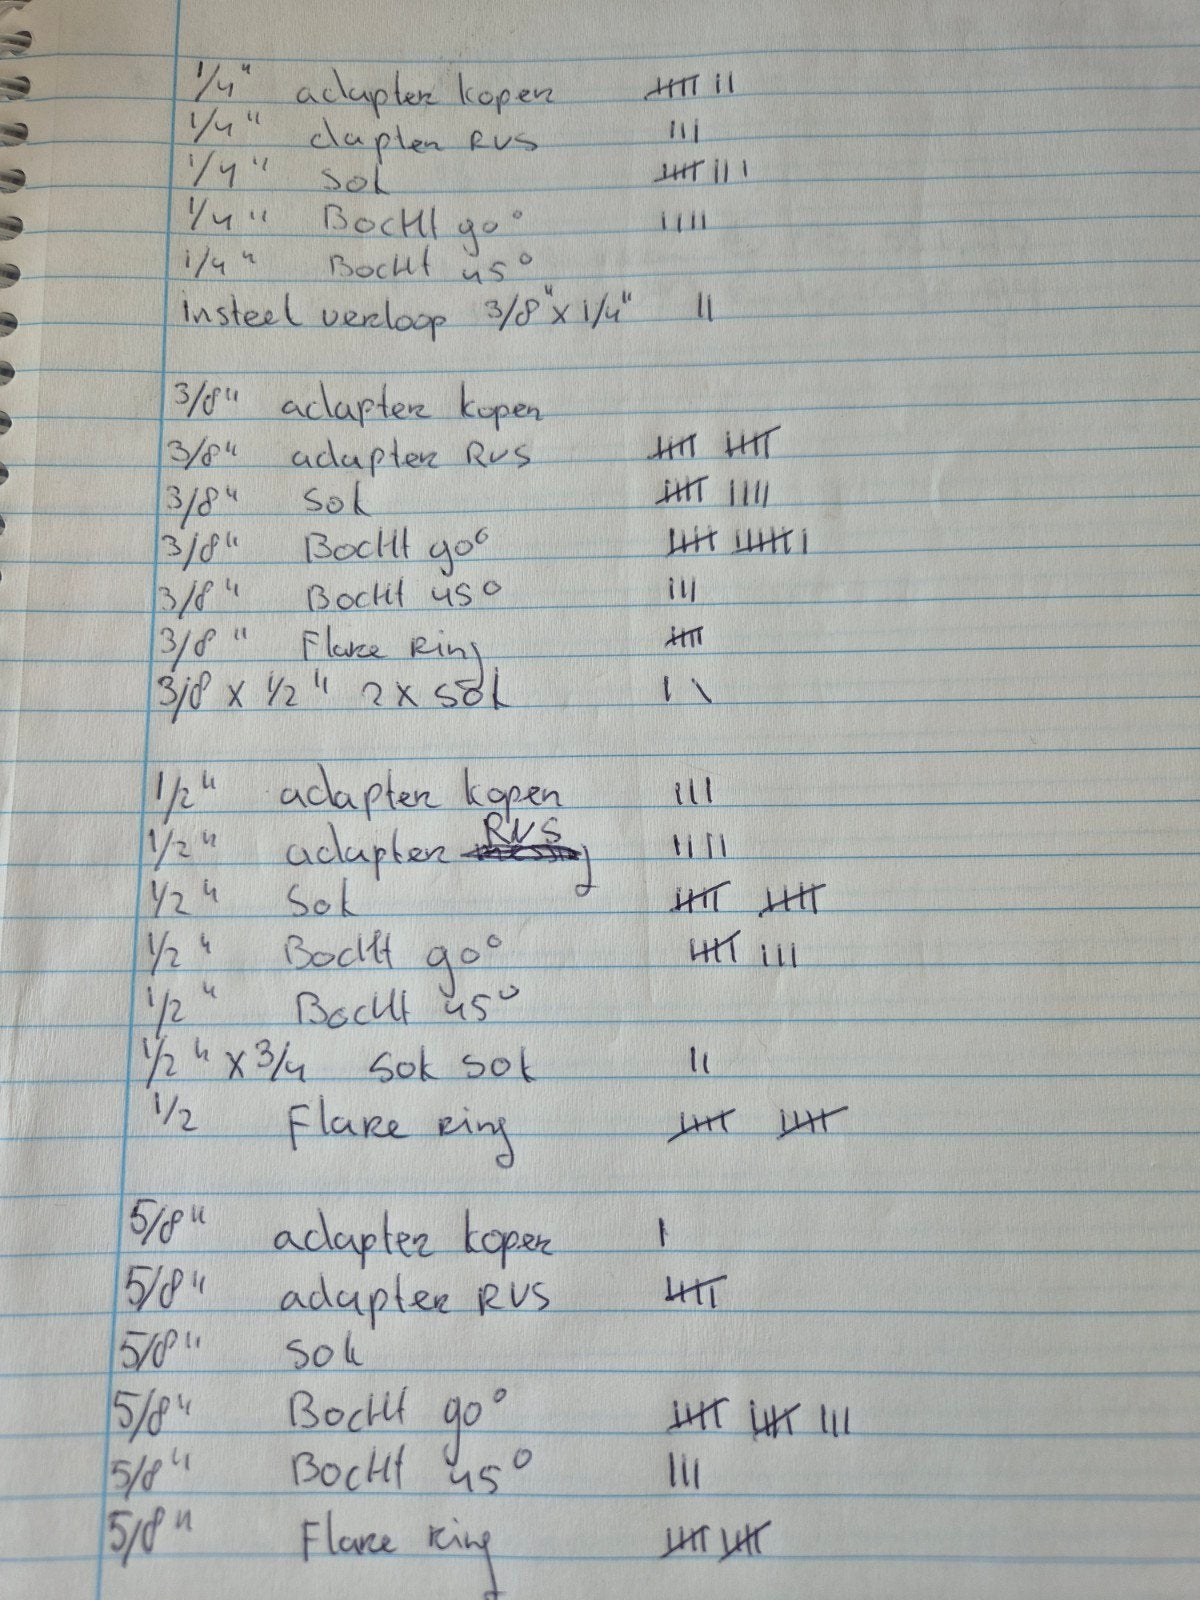 1/4" adapter koper 𝍸 II
1/4" dapter RVS III
1/4" Sok 𝍸 III
1/4" Bocht 90° IIII
1/4" Bocht 45°
insteek verloop 3/8" x 1/4" II
3/8" adapter koper
3/8" adapter RVS 𝍸 𝍸
3/8" Sok 𝍸 IIII
3/8" Bocht 90° 𝍸 𝍸 I
3/8" Bocht 45° III
3/8" Flare ring 𝍸
3/8 x 1/2" 2x Sok I \
1/2" adapter koper III
1/2" adapter RVS IIII
1/2" Sok 𝍸 𝍸
1/2" Bocht 90° 𝍸 III
1/2" Bocht 45°
1/2" x 3/4 Sok Sok II
1/2 Flare ring 𝍸 𝍸
5/8" adapter koper I
5/8" adapter RVS 𝍸
5/8" Sok
5/8" Bocht 90° 𝍸 𝍸 III
5/8" Bocht 45° III
5/8" Flare ring 𝍸 𝍸